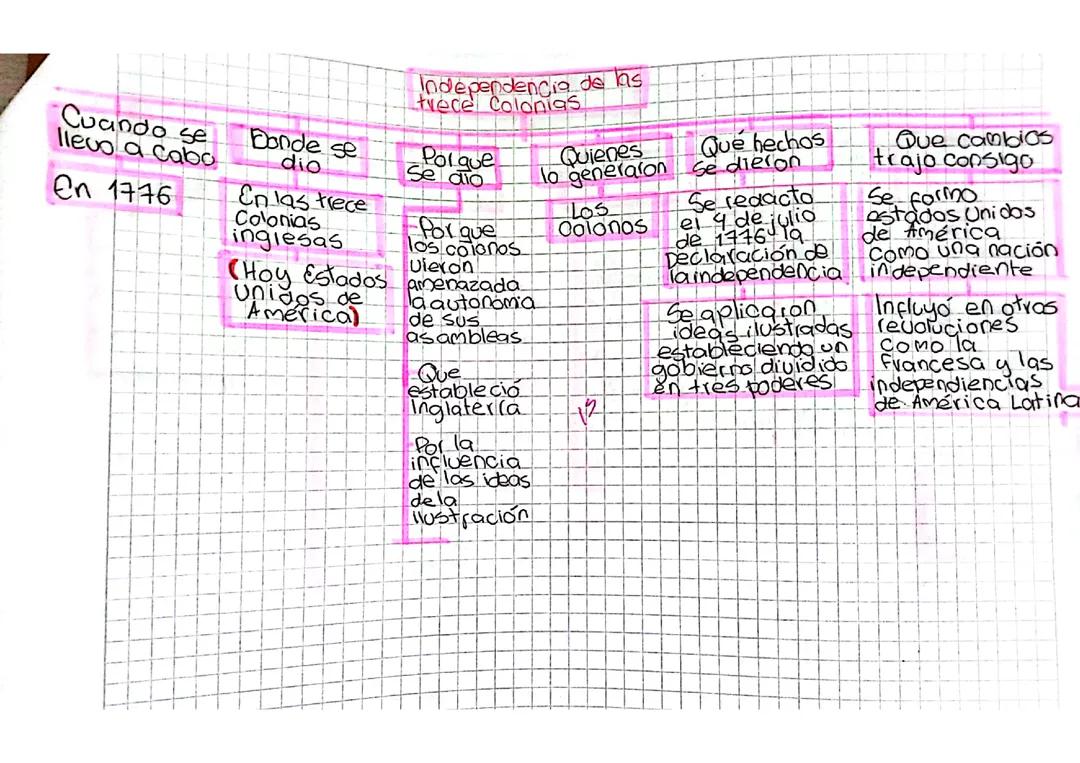 Independencia de las
trece Colonias
Cuando se
llevo a Cabo
En 1776
Donde se
dio
En las trece
Colonias
inglesas
(Hoy Estados
Unidos de
América)
Porque
se dio
-Porque
los colonos
vieron
amenazada
la autonomia
de sus
asambleas
-Que
estableció
Inglaterra
-Por la
influencia
de las ideas
de la
Ilustración
Quienes
lo generaron
Los
Colonos
Qué hechos
se dieron
Se redacto
el 4 de julio
de 1776 la
Declaración de
la independencia
Se aplicaron
ideas ilustradas
estableciendo un
gobierno dividido
en tres poderes
Que cambios
trajo consigo
Se formo
estados Unidos
de América
como una nación
independiente
Influyó en otras
revoluciones
como la
francesa y las
independiencias
de América Latina